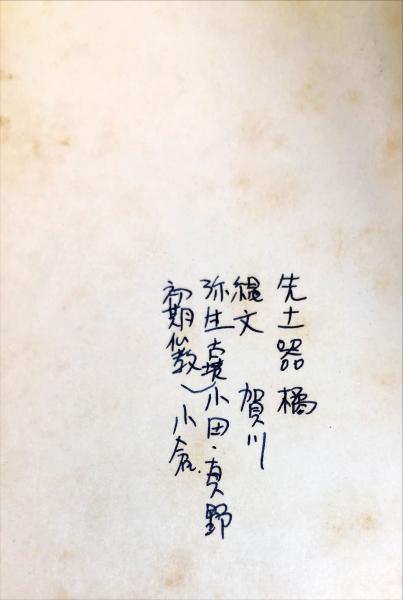 先土器 橘
縄文 賀川
弥生 古墳 小田・真野
初期仏教 小倉